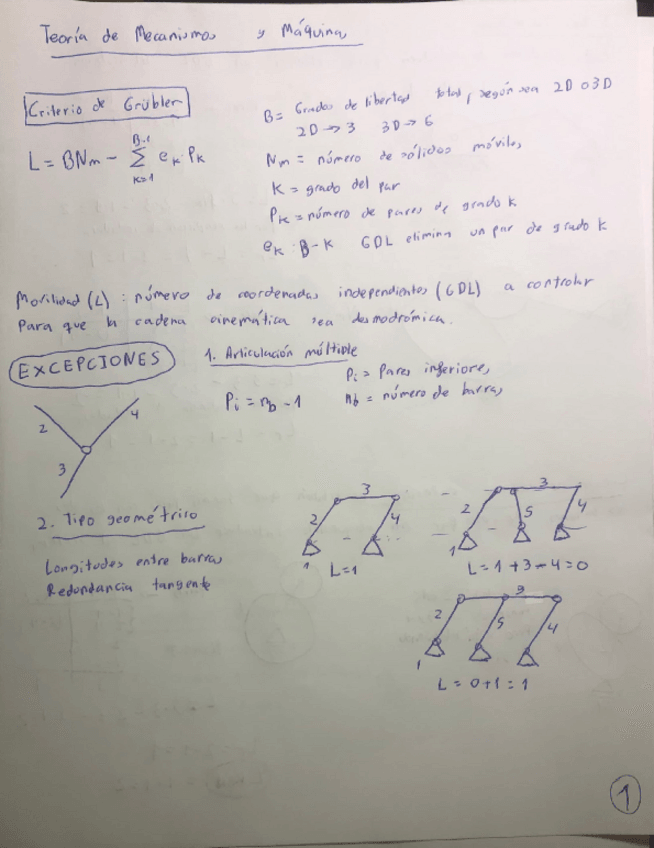 Teoría de Mecanismos y Máquinas
Criterio de Grübler
L = BNm - Σ ek Pk
B-1
K=1
B = Grados de libertad total, según sea 2D o 3D
2D → 3 3D → 6
Nm = número de sólidos móviles
K = grado del par
PK = número de pares de grado k
eK = B-K GDL elimina un par de grado k
Movilidad (L) : número de coordenadas independientes (GDL) a controlar
Para que la cadena cinemática sea desmodrómica.
EXCEPCIONES
1. Articulación múltiple
Pi = nb - 1
Pi = Pares inferiores
nb = número de barras
2 4
3
2. Tipo geométrico
Longitudes entre barras
Redundancia tangente
3
2 4
1
L=1
3
2 5 4
1
L = 1 + 3 - 4 = 0
3
2 5 4
1
L = 0 + 1 = 1
1